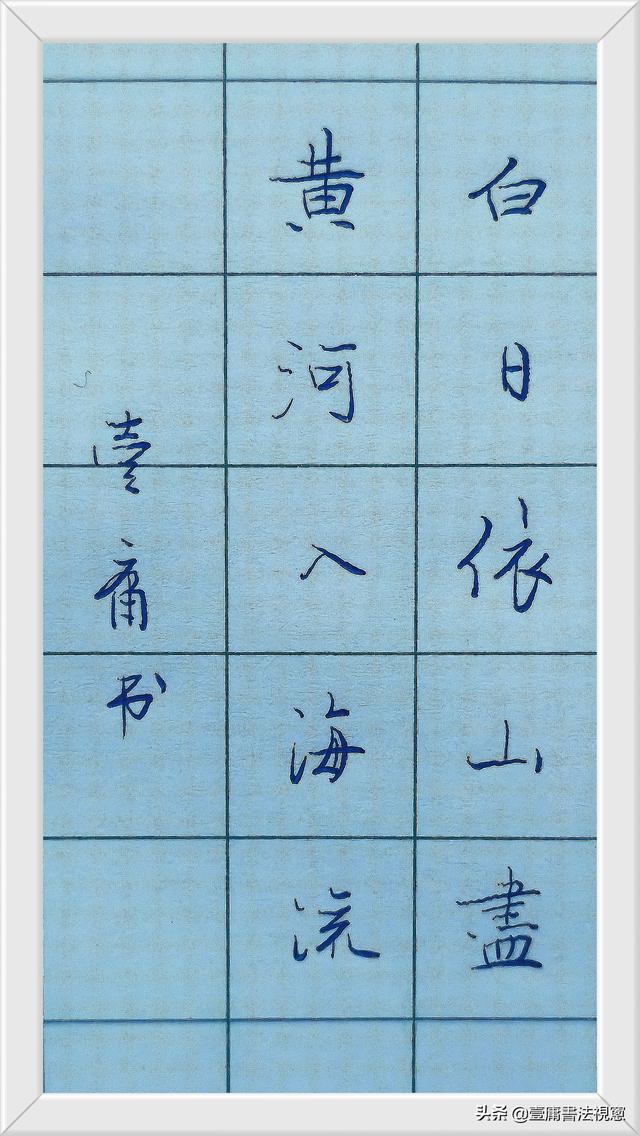 白日依山盡
黄河入海流
壹庸书
头条 @壹庸書法視窻